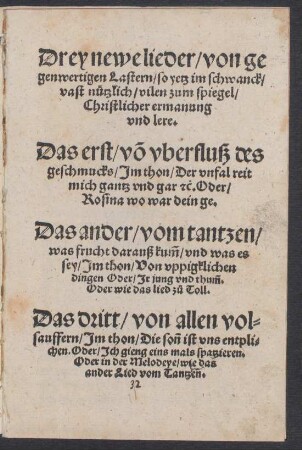 Drey newe lieder/von ge
genwertigen Lastern/so yetz im schwanck/
vast nützlich/vilen zum spiegel/
Christlicher ermanung
vnd lere.
Das erst/võ vberfluß des
geschmucks/Im thon/Der vnfal reit
mich gantz vnd gar ꝛc̃. Oder/
Rosina wo war dein ge.
Das ander/vom tantzen/
was frucht darauß kum̃/vnd was es
sey/Im thon/Von vppigklichen
dingen Oder/Ir jung vnd thum̃.
Oder wie das lied zů Toll.
Das dritt/von allen vol-
sauffern/Im thon/Die son̄ ist vns entpli-
chen. Oder/Ich gieng eins mals spatzieren.
Oder in der Melodeye/wie das
ander Lied vom Tantzen̄.
32